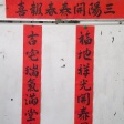 三陽開泰春報喜
福地祥光開泰
吉宅瑞氣滿堂